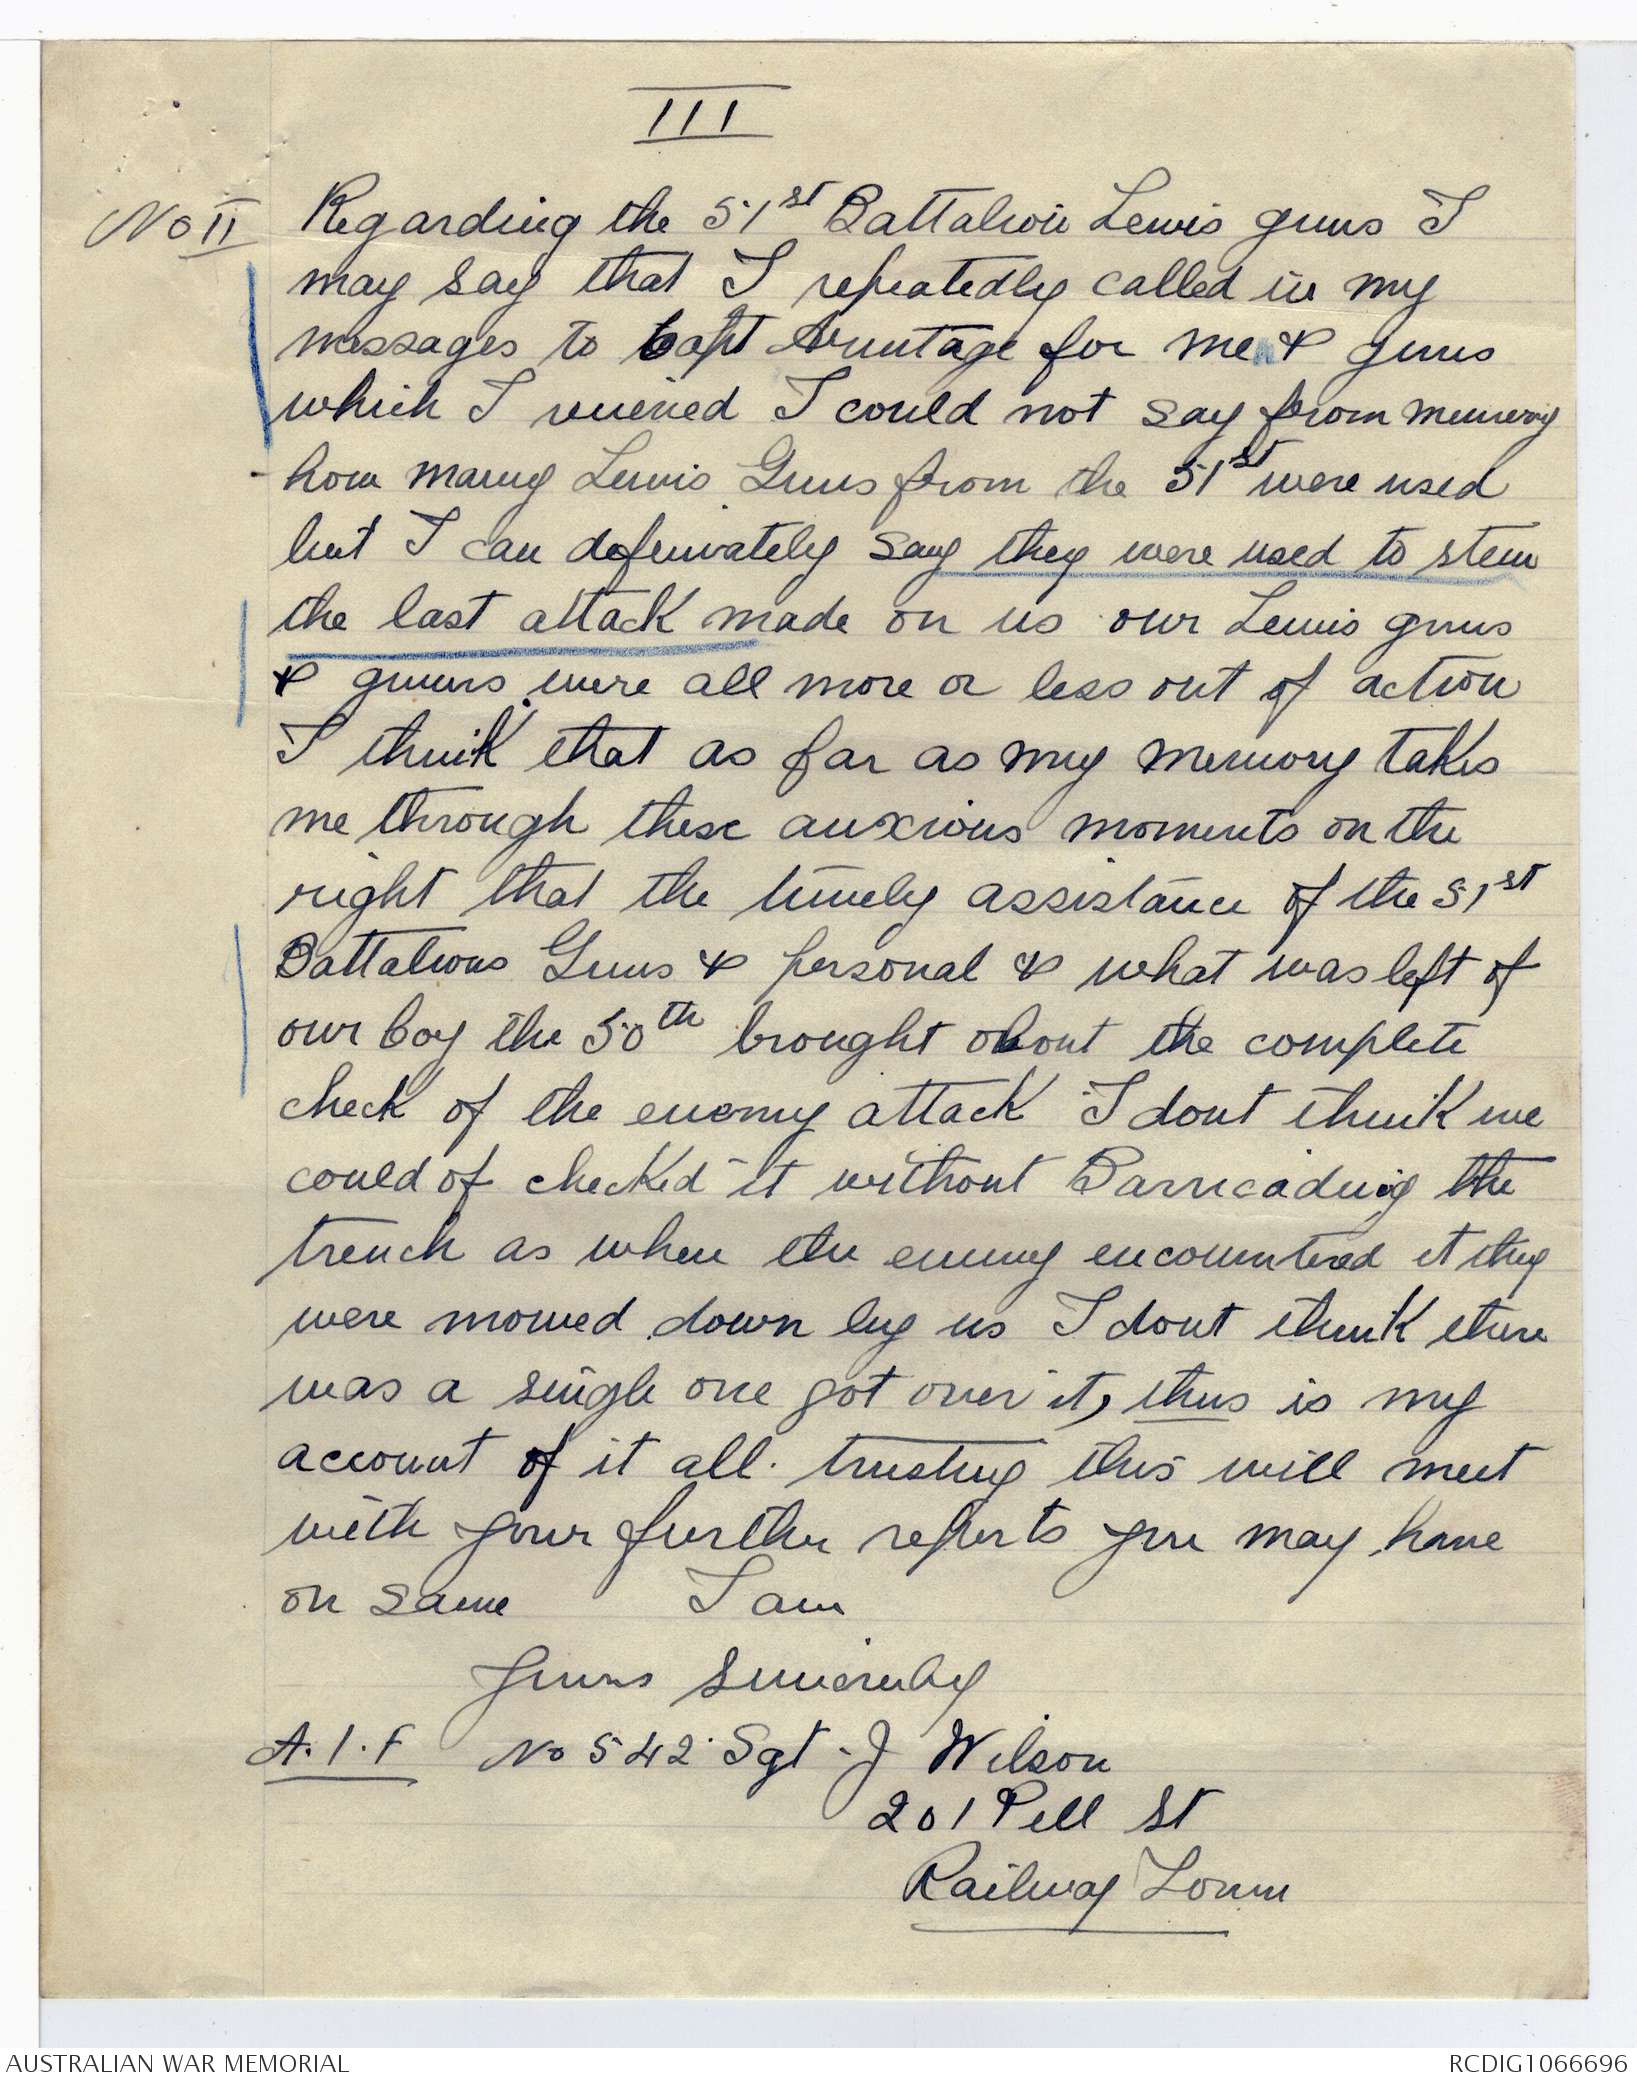 III
No II Regarding the 51st Battalion Lewis guns I
may say that I repeatedly called in my
messages to Capt Armitage for men & guns
which I received I could not say from memory
how many Lewis Guns from the 51st were used
but I can definately say they were used to stem
the last attack made on us our Lewis guns
& gunners were all more or less out of action
I think that as far as my memory takes
me through these anxious moments on the
right that the timely assistance of the 51st
Battalions Guns & personal & what was left of
our Coy the 50th brought about the complete
check of the enemy attack I dont think we
could of checked it without Barricading the
trench as when the enemy encountered it they
were mowed down by us I dont think there
was a single one got over it, this is my
account of it all. trusting this will meet
with your further reports you may have
on same I am
Yours Sincerely
A.I.F No 542 Sgt. J Wilson
201 Pell St
Railway Town
AUSTRALIAN WAR MEMORIAL
RCDIG1066696